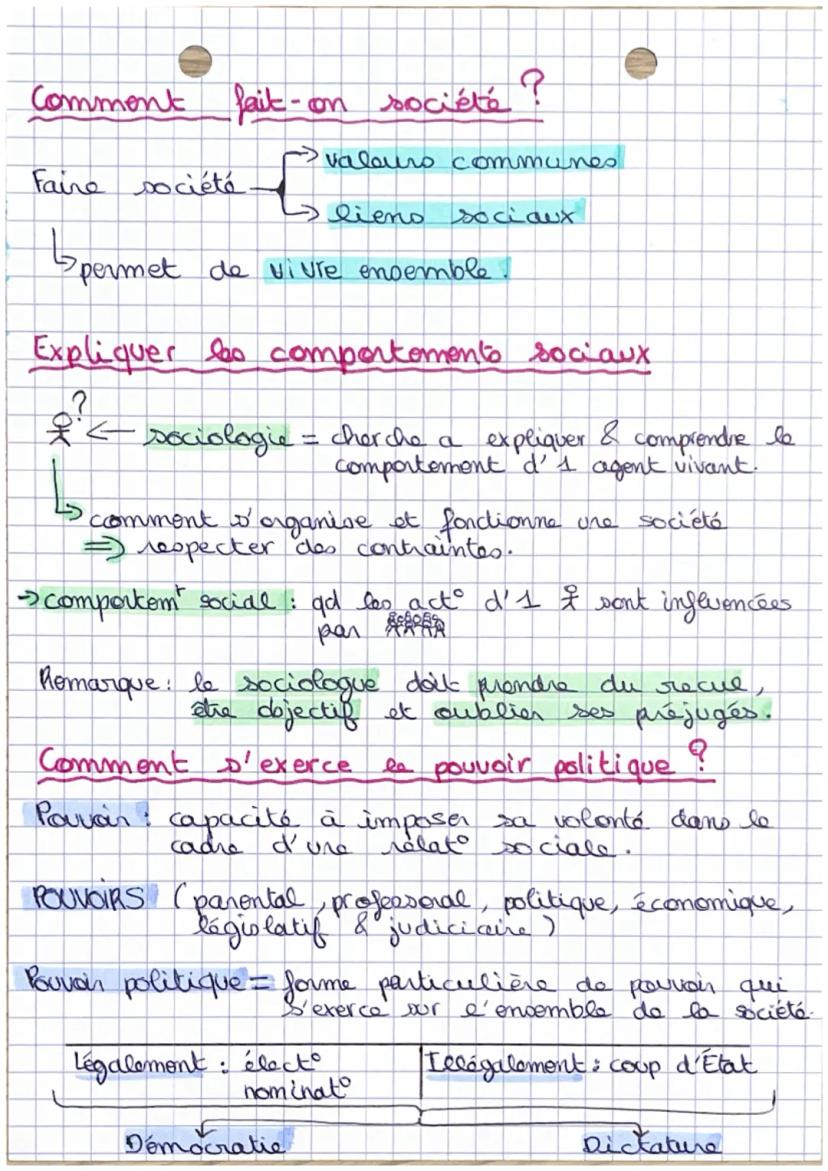 Comment fait-on société ?
Faire société → valeurs communes
→ liens sociaux
↳ permet de vivre ensemble.
Expliquer les comportements sociaux
? ← sociologie = cherche a expliquer & comprendre le
comportement d'1 agent vivant.
↳ comment s'organise et fonctionne une société
⇒ respecter des contraintes.
→ comportemt social : qd les act° d'1 sont influencées
par
Remarque : le sociologue doit prendre du recul,
être objectif et oublier ses préjugés.
Comment s'exerce le pouvoir politique ?
Pouvoir : capacité à imposer sa volonté dans le
cadre d'une relat° sociale.
POUVOIRS (parental, professoral, politique, économique,
législatif & judiciaire)
Pouvoir politique = forme particulière de pouvoir qui
s'exerce sur l'ensemble de la société.
Légalement : élect° Illégalement : coup d'État
nominat°
Démocratie Dictature